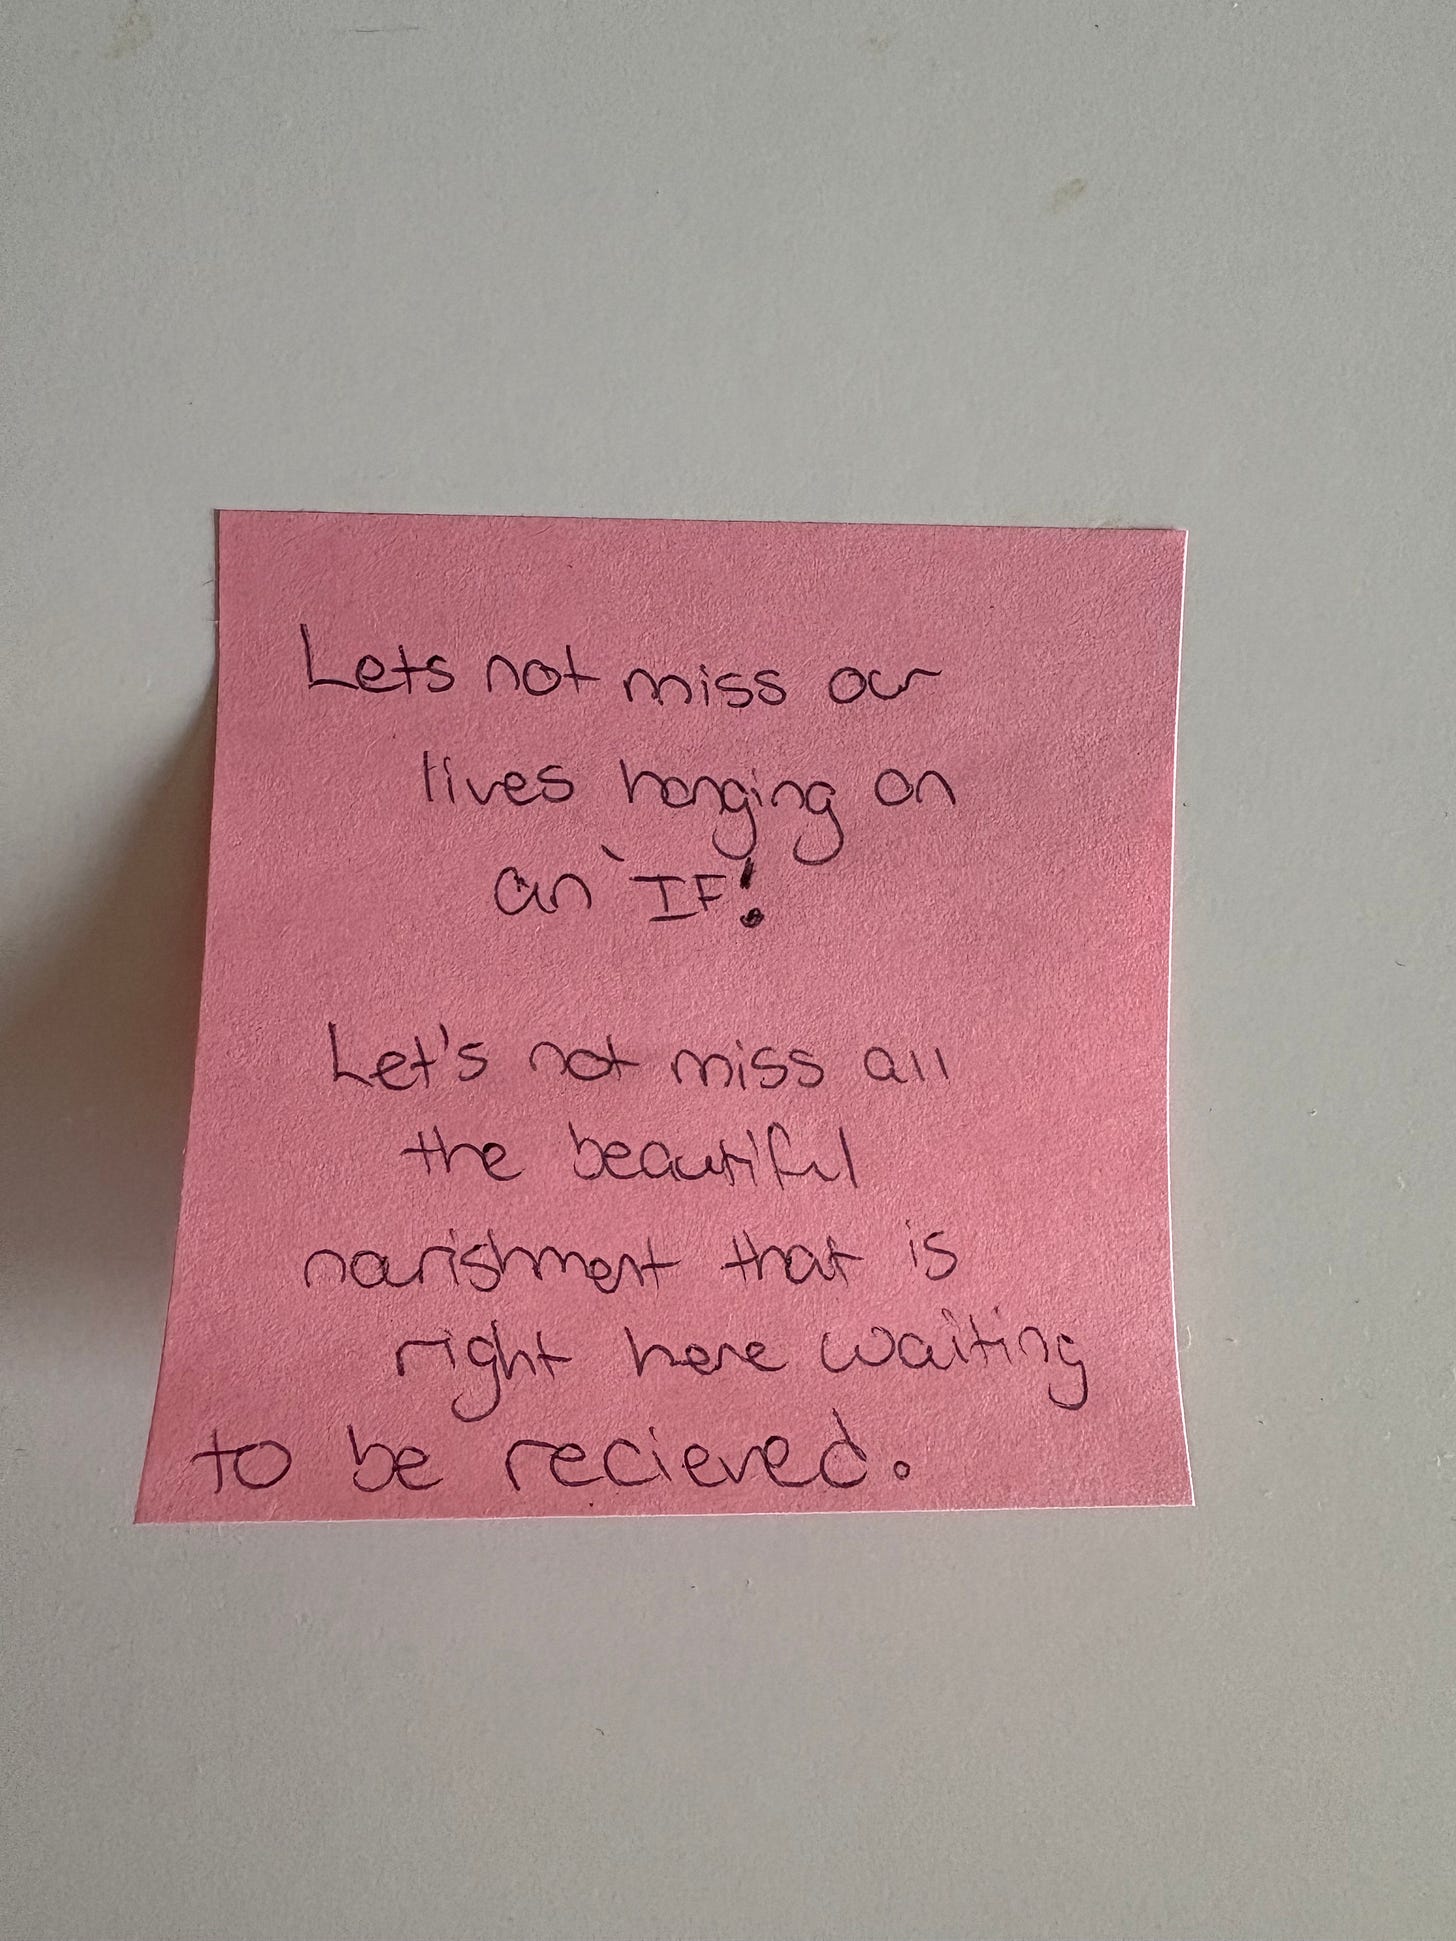 Lets not miss our
lives hanging on
an 'IF!
Let's not miss all
the beautiful
nourishment that is
right here waiting
to be recieved.